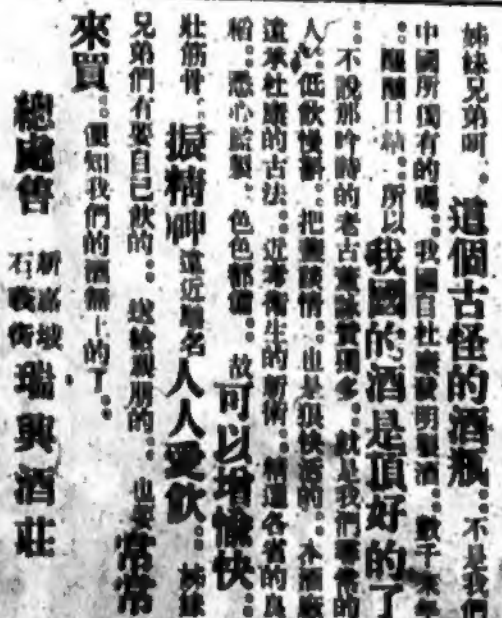 姊妹兄弟呵 這個古怪的酒瓶 不是我們
中國所固有的嗎 我國自杜康發明製酒 數千來年
醞釀日精 所以我國的酒是頂好的了
不說那吟詩的老古董讚賞現多 就是我們尋常的
人 低飲慢斟 把盞談情 也是很快活的 本酒廠
遠承杜康的古法 近兼衛生的新術 精選各省的良
稻 悉心監製 色色都備 故可以增愉快
壯筋骨 振精神 遠近馳名 人人愛飲 姊妹
兄弟們有要自己飲的 送給親朋的 也要常常
來買 便知我們的酒無上的了
總處售 新嘉坡 石叻街 瑞興酒莊